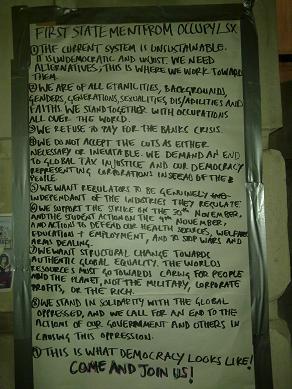 FIRST STATEMENT FROM OCCUPY LSX
① THE CURRENT SYSTEM IS UNSUSTAINABLE.
IT IS UNDEMOCRATIC AND UNJUST. WE NEED
ALTERNATIVES; THIS IS WHERE WE WORK TOWARDS
THEM.
② WE ARE OF ALL ETHNICITIES, BACKGROUNDS,
GENDERS, GENERATIONS, SEXUALITIES, DISABILITIES AND
FAITHS. WE STAND TOGETHER WITH OCCUPATIONS
ALL OVER THE WORLD.
③ WE REFUSE TO PAY FOR THE BANKS CRISIS.
④ WE DO NOT ACCEPT THE CUTS AS EITHER
NECESSARY OR INEVITABLE. WE DEMAND AN END
TO GLOBAL TAX INJUSTICE AND OUR DEMOCRACY
REPRESENTING CORPORATIONS INSTEAD OF THE
PEOPLE.
⑤ WE WANT REGULATORS TO BE GENUINELY
INDEPENDANT OF THE INDUSTRIES THEY REGULATE
⑥ WE SUPPORT THE STRIKE ON THE 30TH NOVEMBER,
AND THE STUDENT ACTION ON THE 9TH NOVEMBER,
AND ACTIONS TO DEFEND OUR HEALTH SERVICES, WELFARE,
EDUCATION + EMPLOYMENT, AND TO STOP WARS AND
ARMS DEALING.
⑦ WE WANT STRUCTURAL CHANGE TOWARDS
AUTHENTIC GLOBAL EQUALITY. THE WORLDS
RESOURCES MUST GO TOWARDS CARING FOR PEOPLE
AND THE PLANET, NOT THE MILITARY, CORPORATE
PROFITS, OR THE RICH.
⑧ WE STAND IN SOLIDARITY WITH THE GLOBAL
OPPRESSED, AND WE CALL FOR AN END TO THE
ACTIONS OF OUR GOVERNMENT AND OTHERS IN
CAUSING THIS OPPRESSION.
⑨ THIS IS WHAT DEMOCRACY LOOKS LIKE!
COME AND JOIN US!